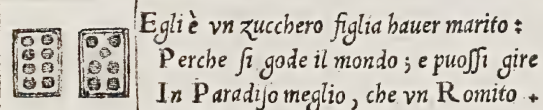 Egli è vn zucchero figlia hauer marito :
Perche ſi gode il mondo ; e puoſſi gire
In Paradiſo meglio , che vn Romito .